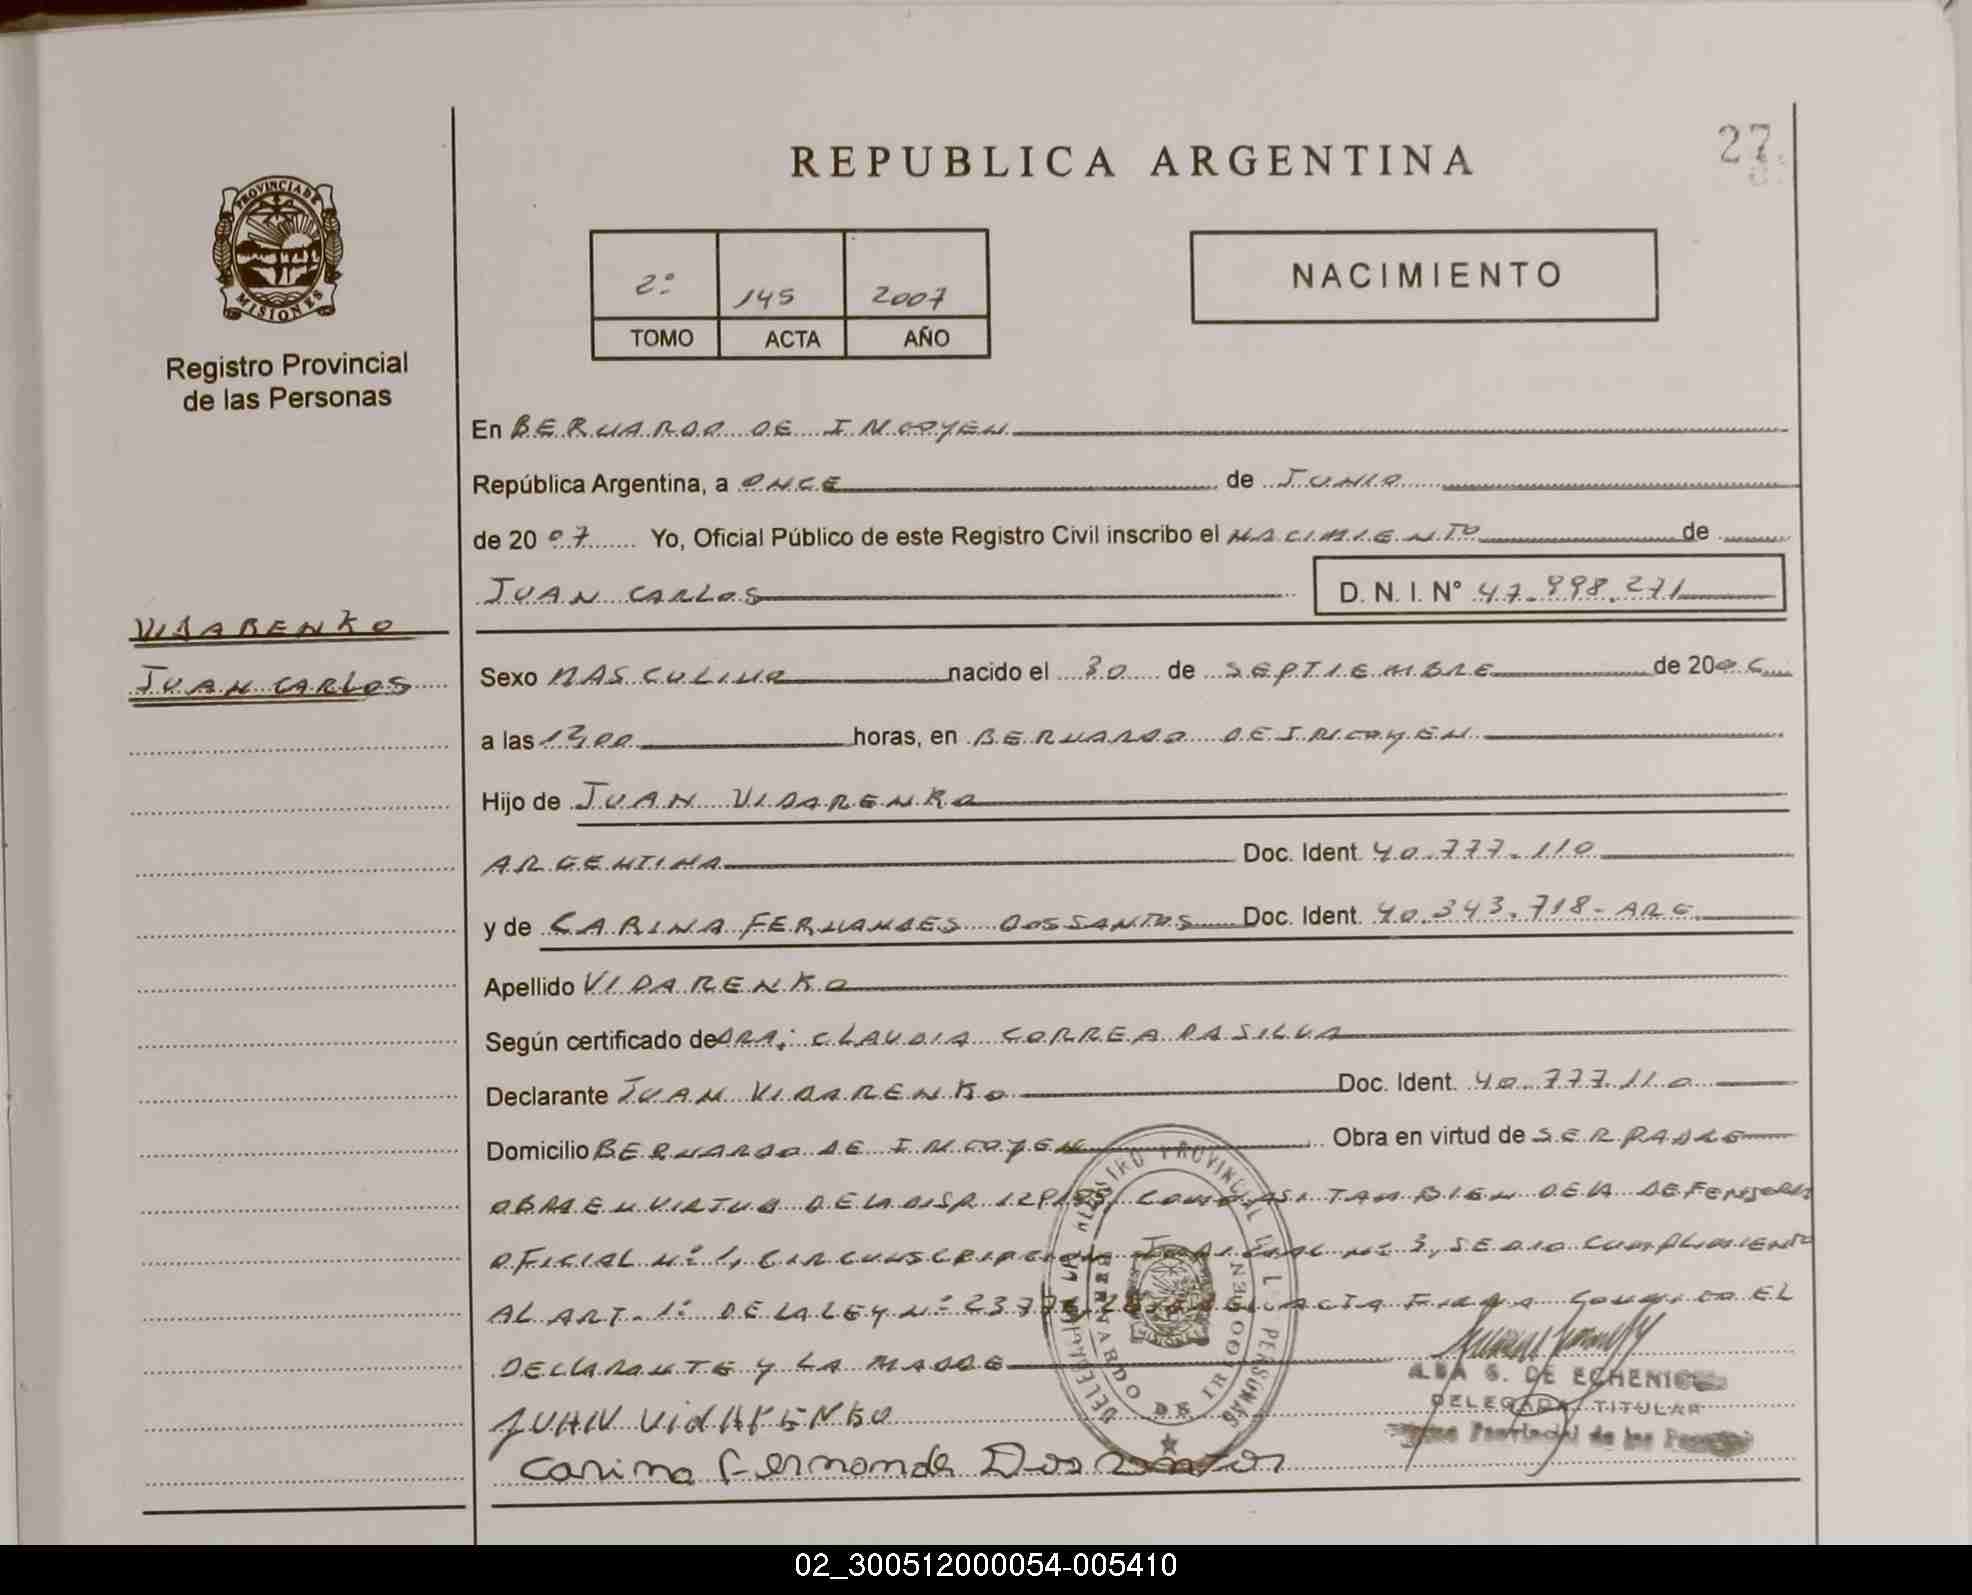 REPUBLICA ARGENTINA
27
PROVINCIA DE MISIONES
Registro Provincial
de las Personas
2º 145 2007
TOMO ACTA AÑO
NACIMIENTO
En BERNARDO DE IRIGOYEN
República Argentina, a ONCE de JUNIO
de 2007 Yo, Oficial Público de este Registro Civil inscribo el NACIMIENTO de
JUAN CARLOS D. N. I. Nº 47.998.271
VIDARENKO
JUAN CARLOS
Sexo MASCULINO nacido el 30 de SEPTIEMBRE de 2006
a las 12,00 horas, en BERNARDO DE IRIGOYEN
Hijo de JUAN VIDARENKO
ARGENTINA Doc. Ident. 40.777.110
y de CARINA FERNANDES DOS SANTOS Doc. Ident. 40.343.718-ARG
Apellido VIDARENKO
Según certificado de DRA: CLAUDIA CORREA DA SILVA
Declarante JUAN VIDARENKO Doc. Ident. 40.777.110
Domicilio BERNARDO DE IRIGOYEN Obra en virtud de SER PADRE
OBRA EN VIRTUD DE LA DISP. COMO ASI TAMBIEN DE LA DEFENSORIA
OFICIAL Nº 1, CIRCUNSCRIPCION JUDICIAL Nº 3, SE DIO CUMPLIMIENTO
AL ART. 1º DE LA LEY Nº ACTA FIRMA CONMIGO EL
DECLARANTE Y LA MADRE
JUAN VidARENKO
Carina Fernandes Dos santos
REGISTRO PROVINCIAL DE LAS PERSONAS
DELEGACION
BERNARDO DE IRIGOYEN
ALBA S. DE ECHENIQUE
DELEGADA TITULAR
Provincial de las Personas
02_300512000054-005410